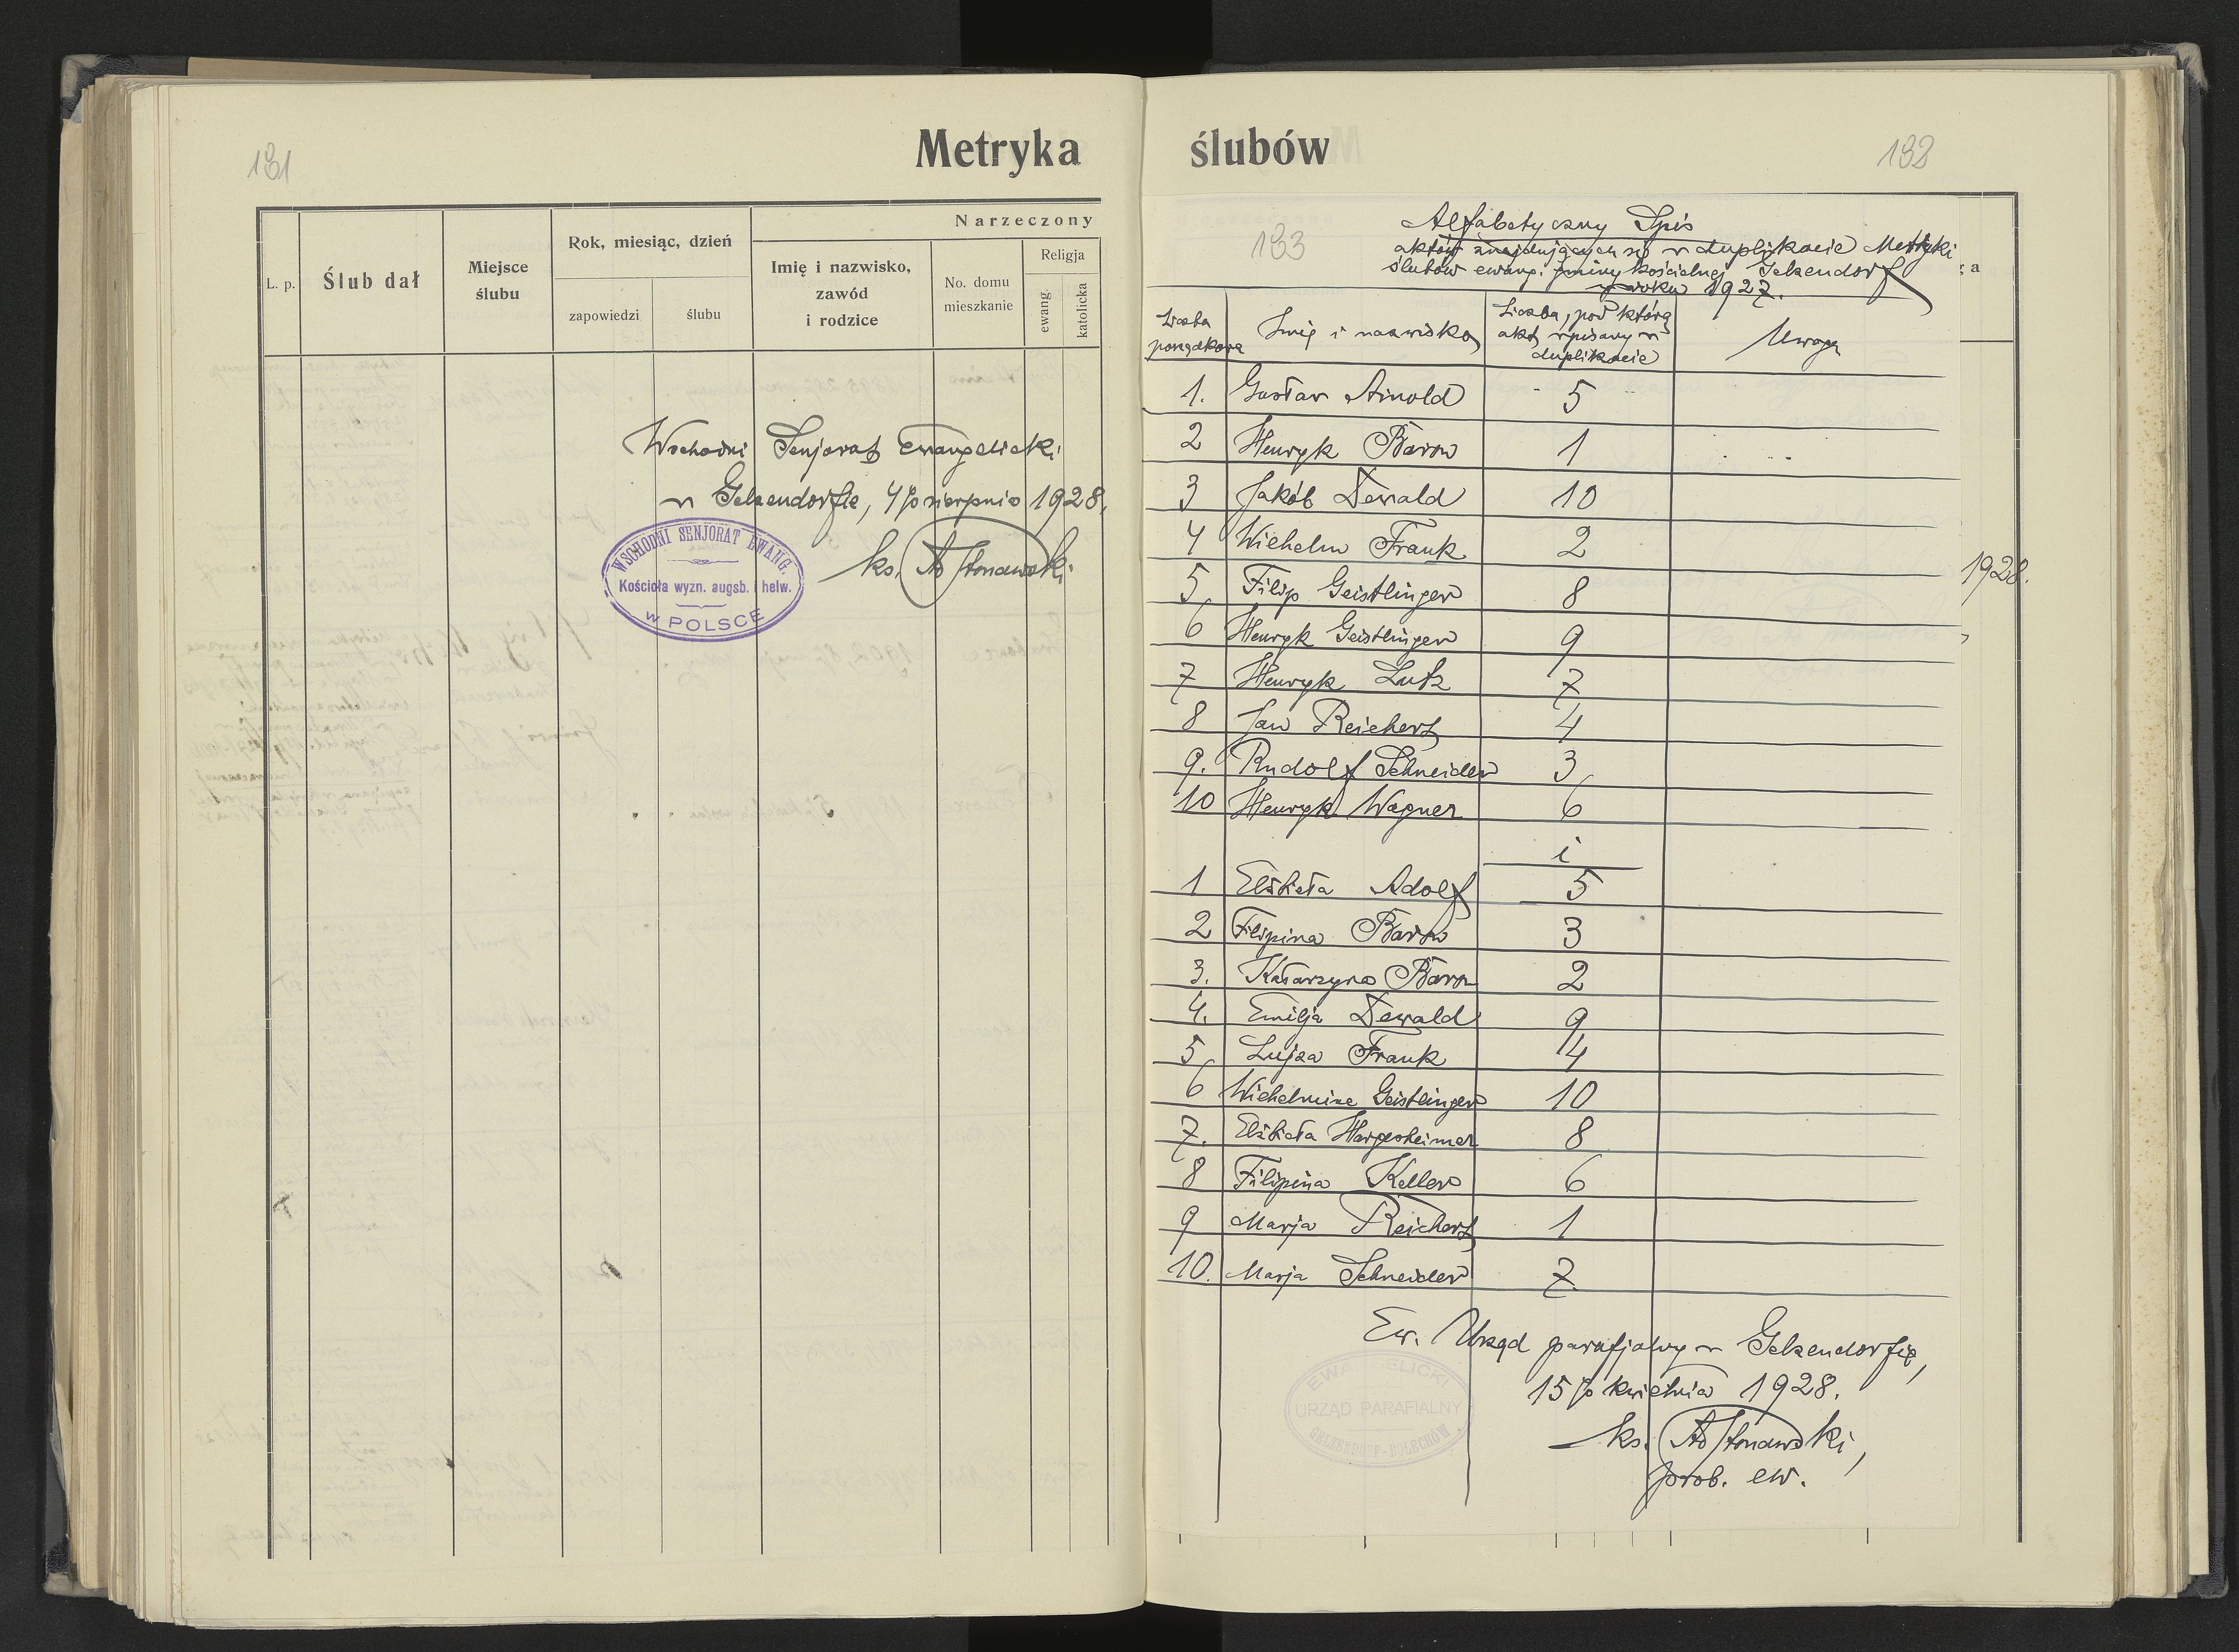 131
Metryka
L. p.
Ślub dał
Miejsce
ślubu
Rok, miesiąc, dzień
zapowiedzi
ślubu
Narzeczony
Imię i nazwisko,
zawód
i rodzice
No. domu
mieszkanie
Religja
ewang.
katolicka
Wschodni Senjorat Ewangelicki
w Gelsendorfie, 4go sierpnia 1928.
WSCHODNI SENJORAT EWANG.
Kościoła wyzn. augsb. i helw.
w POLSCE
ks.
ślubów
132
133
Alfabetyczny Spis
aktów znajdujących się w duplikacie Metryki
ślubów ewang. gminy kościelnej Gelsendorf
w roku 1927.
Liczba porządkowa
Imię i nazwisko
Liczba, pod którą
akt wpisany w
duplikacie
Uwaga
1. Gustav Arnold 5
2 Henryk Baron 1
3 Jakób Dewald 10
4 Wilhelm Frank 2
5 Filip Geistlinger 8
6 Henryk Geistlinger 9
7 Henryk Lutz 7
8 Jan Reichert 4
9. Rudolf Schneider 3
10 Henryk Wagner 6
i
1 Elżbieta Adolf 5
2 Filipina Baron 3
3. Katarzyna Baron 2
4. Emilja Dewald 9
5 Lujza Frank 4
6 Wilhelmine Geistlinger 10
7. Elżbieta Hargesheimer 8
8 Filipina Keller 6
9 Marja Reichert 1
10. Marja Schneider 7
Ew. Urząd parafjalny w Gelsendorfie,
15go kwietnia 1928.
EWANGELICKI
URZĄD PARAFIALNY
GELSENDORF-BOLECHÓW
ks.
prob. ew.
a
1928.